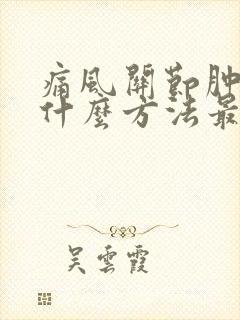 痛風關節肿
什麼方法最
吴雲霞